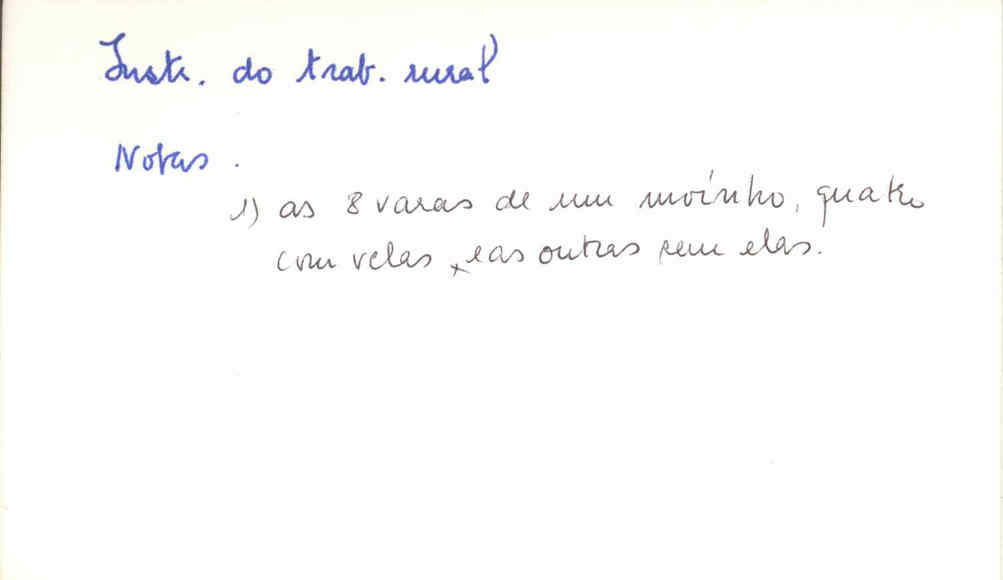 Instr. do trab. rural
Notas.
1) as 8 varas de um moínho, quatro
com velas, e as outras sem elas.